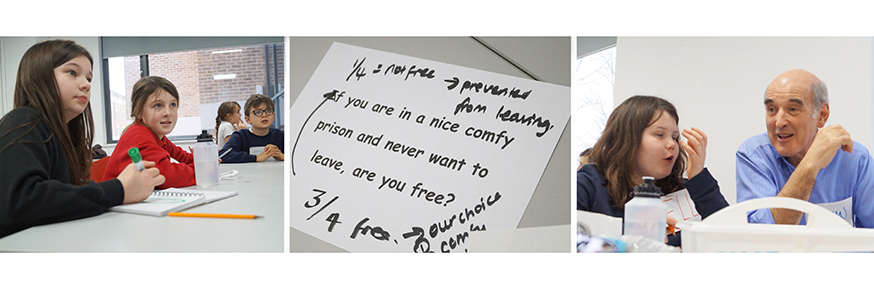 1/4 = not free → prevented
from leaving.
If you are in a nice comfy
prison and never want to
leave, are you free?
3/4 free. → our choice